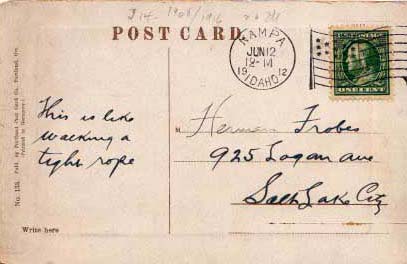 1908/1916
POST CARD.
NAMPA
JUN 12
12-M
1912
IDAHO
ONE CENT
This is like
walking a
tight rope
M
Herman Frobes
925 Logan ave
Salt Lake City
No. 125. Publ. by Portland Post Card Co., Portland, Ore.
(Printed in Germany)
Write here